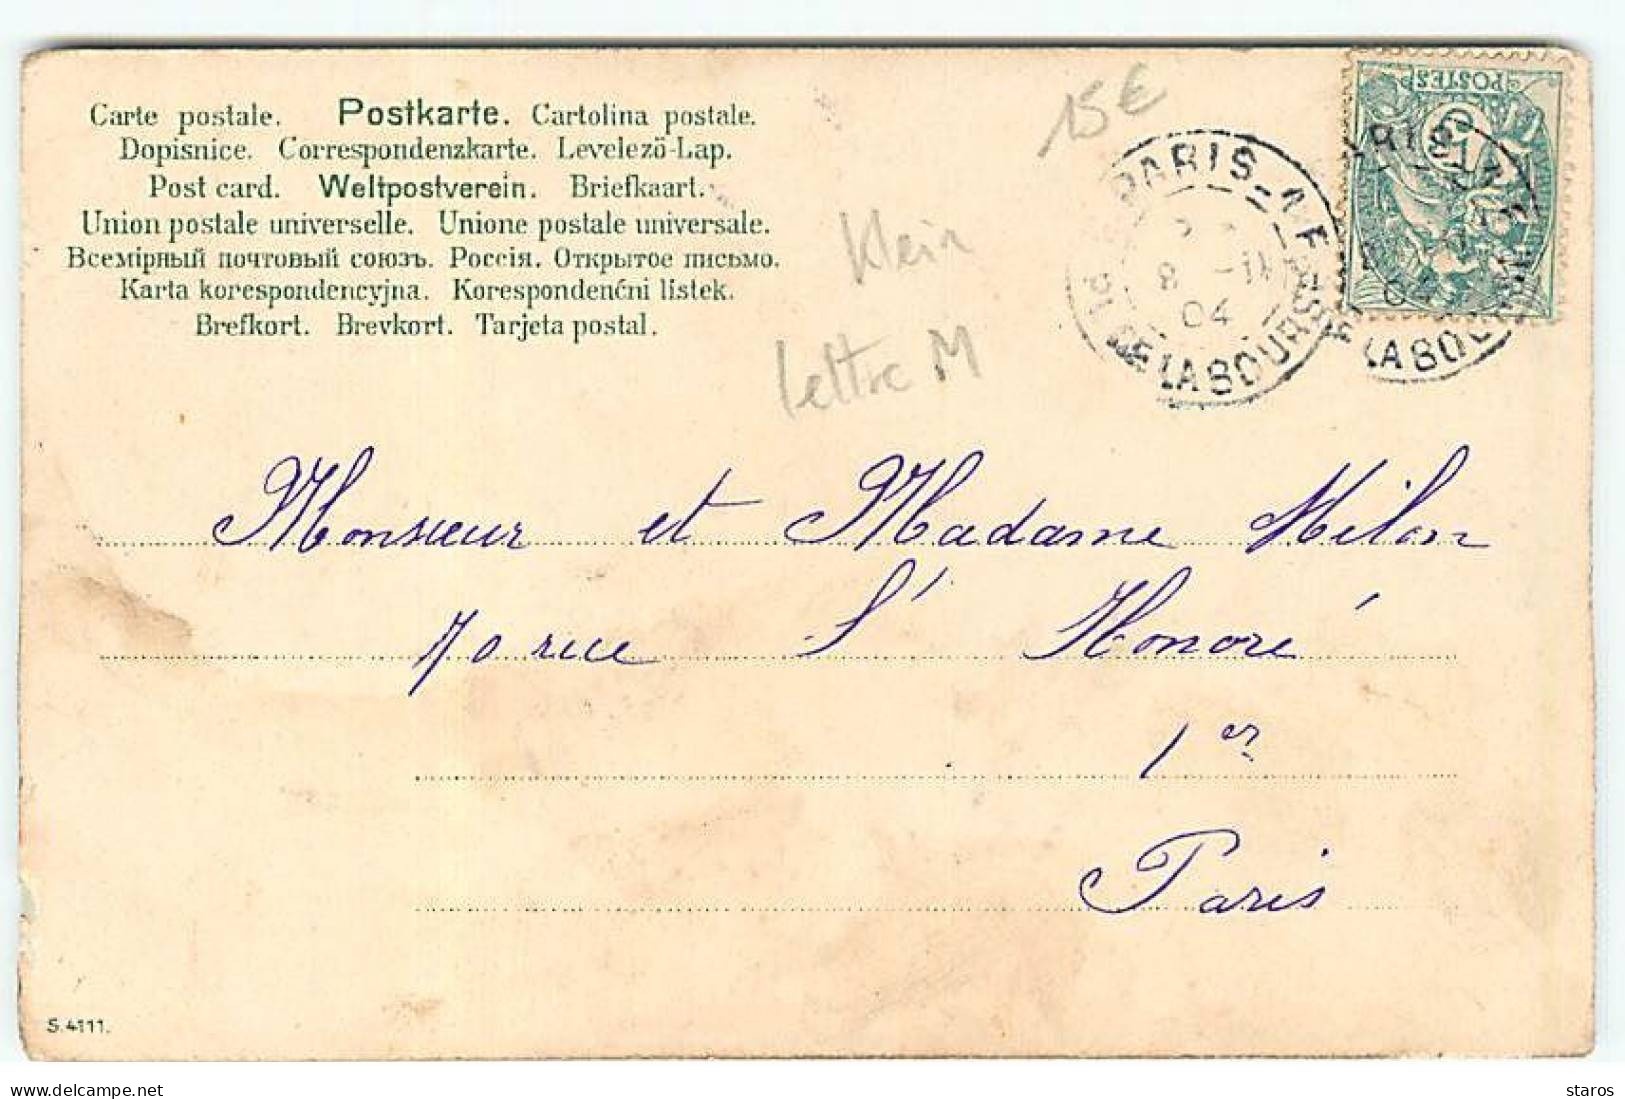 Carte postale. Postkarte. Cartolina postale.
Dopisnice. Correspondenzkarte. Levelező-Lap.
Post card. Weltpostverein. Briefkaart.
Union postale universelle. Unione postale universale.
Всемірный почтовый союзъ. Россія. Открытое письмо.
Karta korespondencyjna. Korespondenčni listek.
Brefkort. Brevkort. Tarjeta postal.
15€
Klein
lettre M
POSTES
PARIS
PL DE LA BOURSE
8 -11
04
RIS
04
LA BOU
Monsieur et Madame Milon
70 rue St Honoré
1er
Paris
S. 4111.
www.delcampe.net
staros